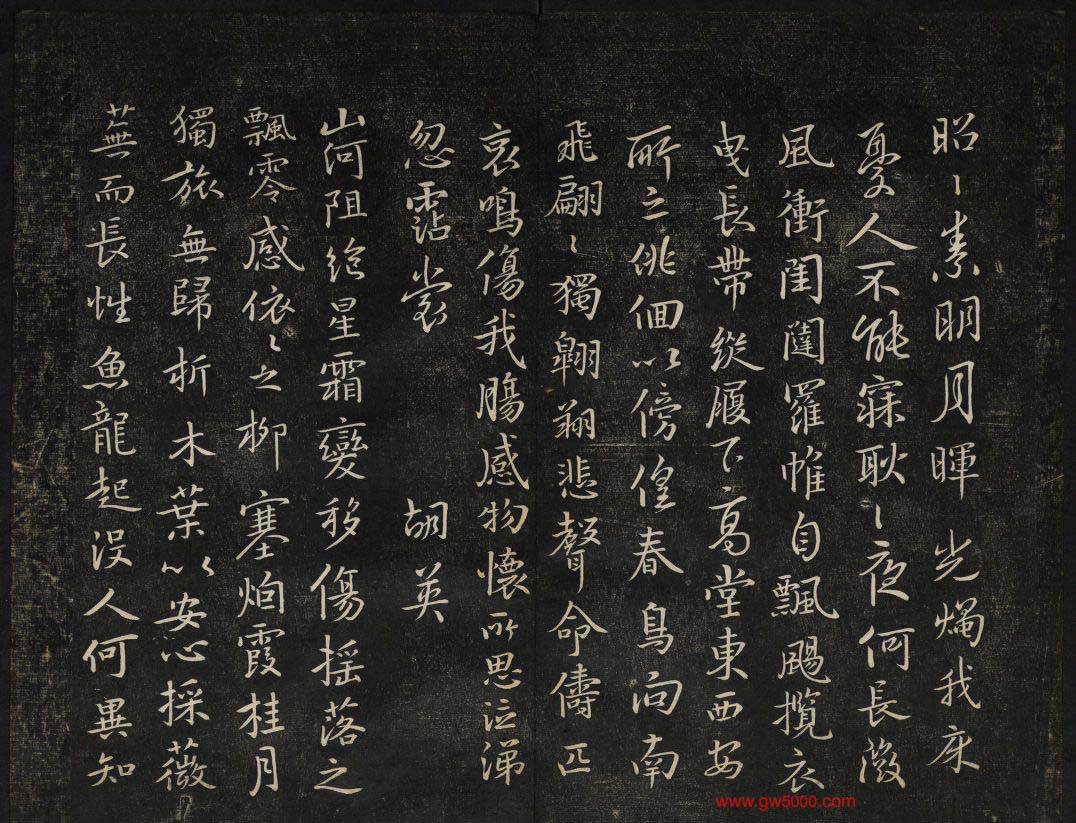 昭〻素明月暉光燭我床
憂人不能寐耿〻夜何長微
風衝閨闥羅帷自飄颺攬衣
曳長帶縱履下高堂東西安
所之俳佪以傍偟春鳥向南
飛翩〻獨翱翔悲聲命儔匹
哀鳴傷我腸感物懷所思泣涕
忽霑裳 胡英
山河阻絶星霜變移傷摇落之
飄零感依〻之柳塞烟霞桂月
獨旅無歸折木葉以安心採薇
蕪而長性魚龍起没人何異知
www.gw5000.com